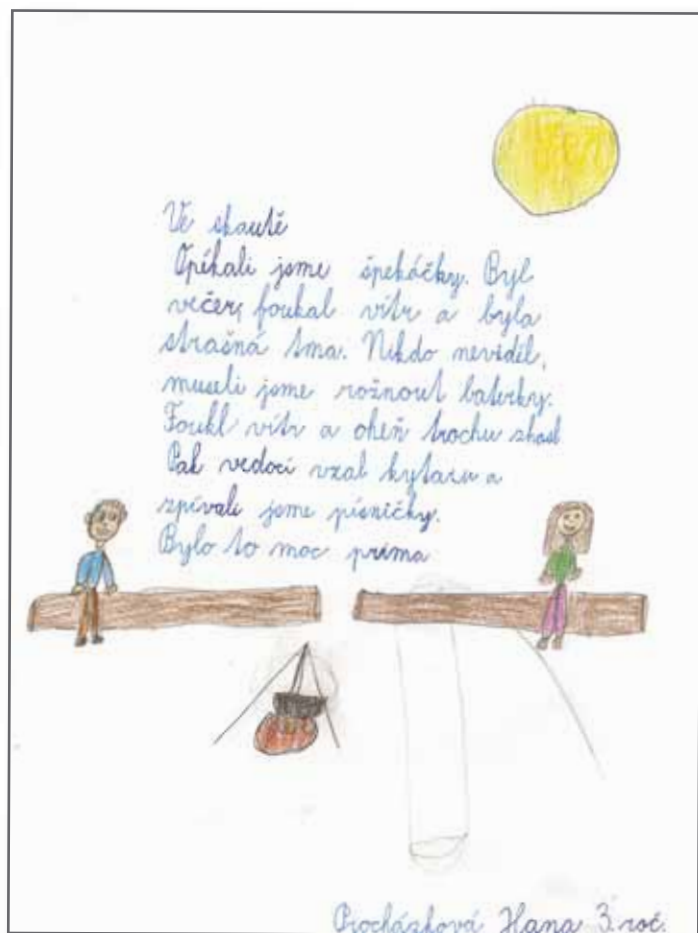 Ve skautě
Opékali jsme špekáčky. Byl
večer, foukal vítr a byla
strašná tma. Nikdo neviděl,
museli jsme rožnout baterky.
Foukl vítr a oheň trochu zhasl
Pak vedocí vzal kytaru a
zpívali jsme písničky.
Bylo to moc príma
Procházková Hana 3. roč.